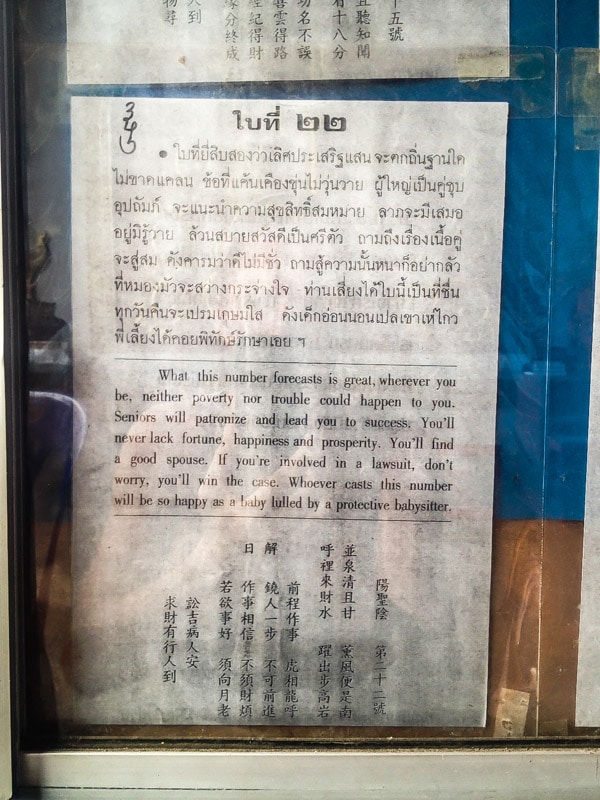 十五號
有十八分
功名不誤
雲得路
經紀得財
分終成
人到
物尋
ใบที่ ๒๒
• ใบที่ยี่สิบสองว่าเลิศประเสริฐแสน จะตกถิ่นฐานใด
ไม่ขาดแคลน ข้อที่แค้นเคืองขุ่นไม่วุ่นวาย ผู้ใหญ่เป็นคู่ชุบ
อุปถัมภ์ จะแนะนำความสุขสิทธิ์สมหมาย ลาภจะมีเสมอ
อยู่มิรู้วาย ล้วนสบายสวัสดีเป็นศรีตัว ถามถึงเรื่องเนื้อคู่
จะสู่สม ดังคารมว่าดีไม่มีชั่ว ถามสู้ความนั้นหนาก็อย่ากลัว
ที่หมองมัวจะสว่างกระจ่างใจ ท่านเสี่ยงได้ใบนี้เป็นที่ชื่น
ทุกวันคืนจะเปรมเกษมใส ดังเด็กอ่อนนอนเปลเขาเห่ไกว
พี่เลี้ยงได้คอยพิทักษ์รักษาเอย ฯ
What this number forecasts is great, wherever you
be, neither poverty nor trouble could happen to you.
Seniors will patronize and lead you to success. You'll
never lack fortune, happiness and prosperity. You'll find
a good spouse. If you're involved in a lawsuit, don't
worry, you'll win the case. Whoever casts this number
will be so happy as a baby lulled by a protective babysitter.
陽聖陰 第二十二號
並泉清且甘 薰風便是南
呼裡來財水 躍出步高岩
前程作事 虎相龍呼
解 饒人一步 不可前進
日 作事相信 不須財煩
若欲事好 須向月老
訟吉病人安
求財有行人到